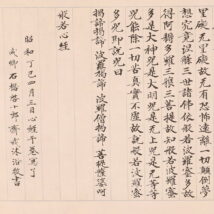 罣礙無罣礙故無有恐怖遠離一切顛倒夢
想究竟涅槃三世諸佛依般若波羅蜜多故
得阿耨多羅三藐三菩提故知般若波羅蜜
多是大神咒是大明咒是無上咒是無等等
咒能除一切苦真實不虛故說般若波羅蜜
多咒即說咒曰
揭諦揭諦 波羅揭諦 波羅僧揭諦 菩提薩婆訶
般若心經
昭和丁巳四月三日心經千卷寫了
武州石橋啓十郎 齋戒沐浴敬書